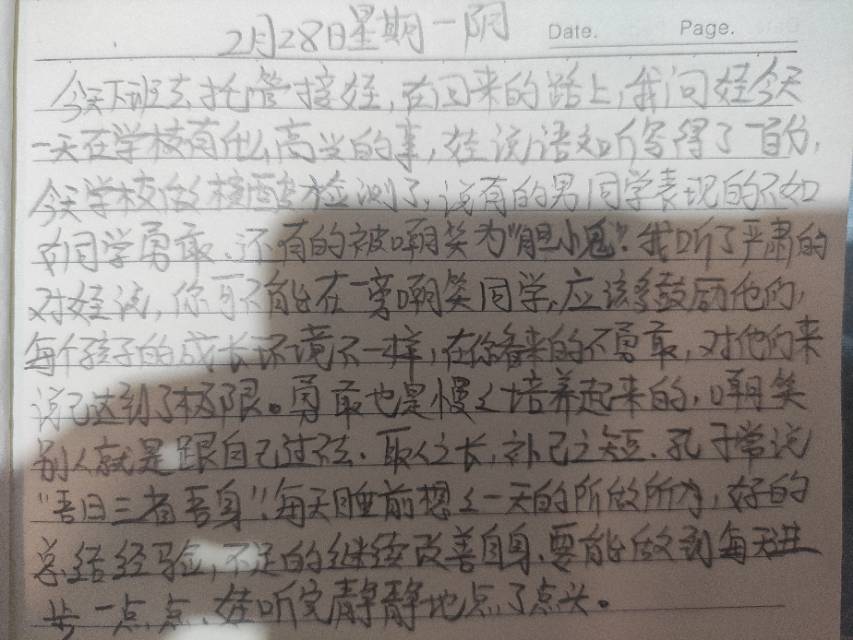 2月28日星期一阴
Date.
Page.
今天下班去托管接娃,在回来的路上,我问娃今天
一天在学校有什么高兴的事,娃说语文听写得了一百分,
今天学校做核酸检测了,说有的男同学表现的不如
女同学勇敢、还有的被嘲笑为"胆小鬼"。我听了严肃的
对娃说,你可不能在一旁嘲笑同学,应该多鼓励他们,
每个孩子的成长环境不一样,在你看来的不勇敢,对他们来
说已达到了极限。勇敢也是慢々培养起来的,嘲笑
别人就是跟自己过弦、取人之长,补己之短、孔子常说
"吾日三省吾身"。每天睡前想々一天的所做所为,好的
总结经验,不足的继续改善自身、要能做到每天进
步一点点、娃听完静静地点了点头。